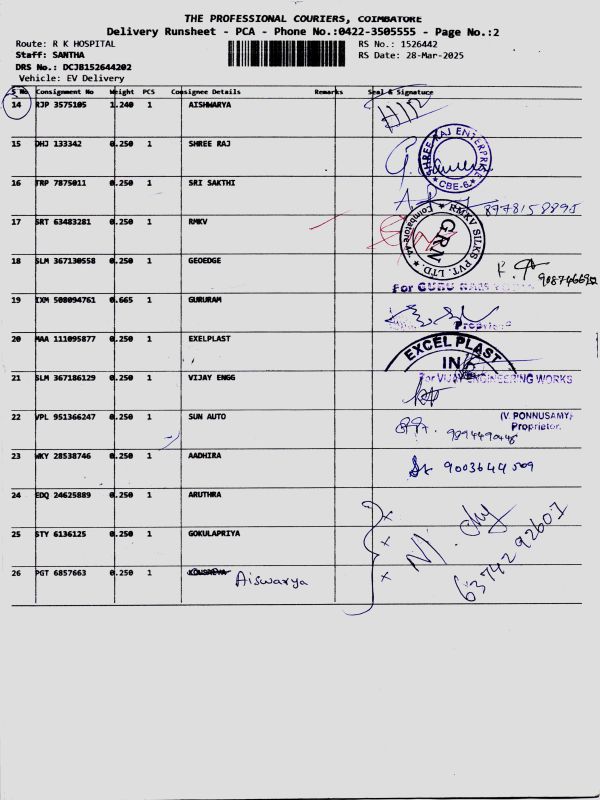 THE PROFESSIONAL COURIERS, COIMBATORE
Delivery Runsheet - PCA - Phone No.:0422-3505555 - Page No.:2
Route: R K HOSPITAL
RS No.: 1526442
Staff: SANTHA
RS Date: 28-Mar-2025
DRS No.: DCJB152644202
Vehicle: EV Delivery
S No Consignment No Weight PCS Consignee Details Remarks Seal & Signature
14 RJP 3575105 1.240 1 AISHWARYA
15 DHJ 133342 0.250 1 SHREE RAJ
SHREE RAJ ENTERPRISE
* CBE-6. *
16 TRP 7875011 0.250 1 SRI SAKTHI
8778158895
17 SRT 63483281 0.250 1 RMKV
RMKV SILKS PVT. LTD.
GRN
18 SLM 367130558 0.250 1 GEOEDGE
For GURU RAM
19 IXM 508094761 0.665 1 GURURAM
20 MAA 111095877 0.250 1 EXELPLAST
EXCEL PLAST
IN
21 SLM 367186129 0.250 1 VIJAY ENGG
For VIJAY ENGINEERING WORKS
22 VPL 951366247 0.250 1 SUN AUTO
(V. PONNUSAMY)
Proprietor.
23 MKY 28538746 0.250 1 AADHIRA
9003644509
24 EDQ 24625889 0.250 1 ARUTHRA
25 STY 6136125 0.250 1 GOKULAPRIYA
6374292601
26 PGT 6857663 0.250 1 Aiswarya